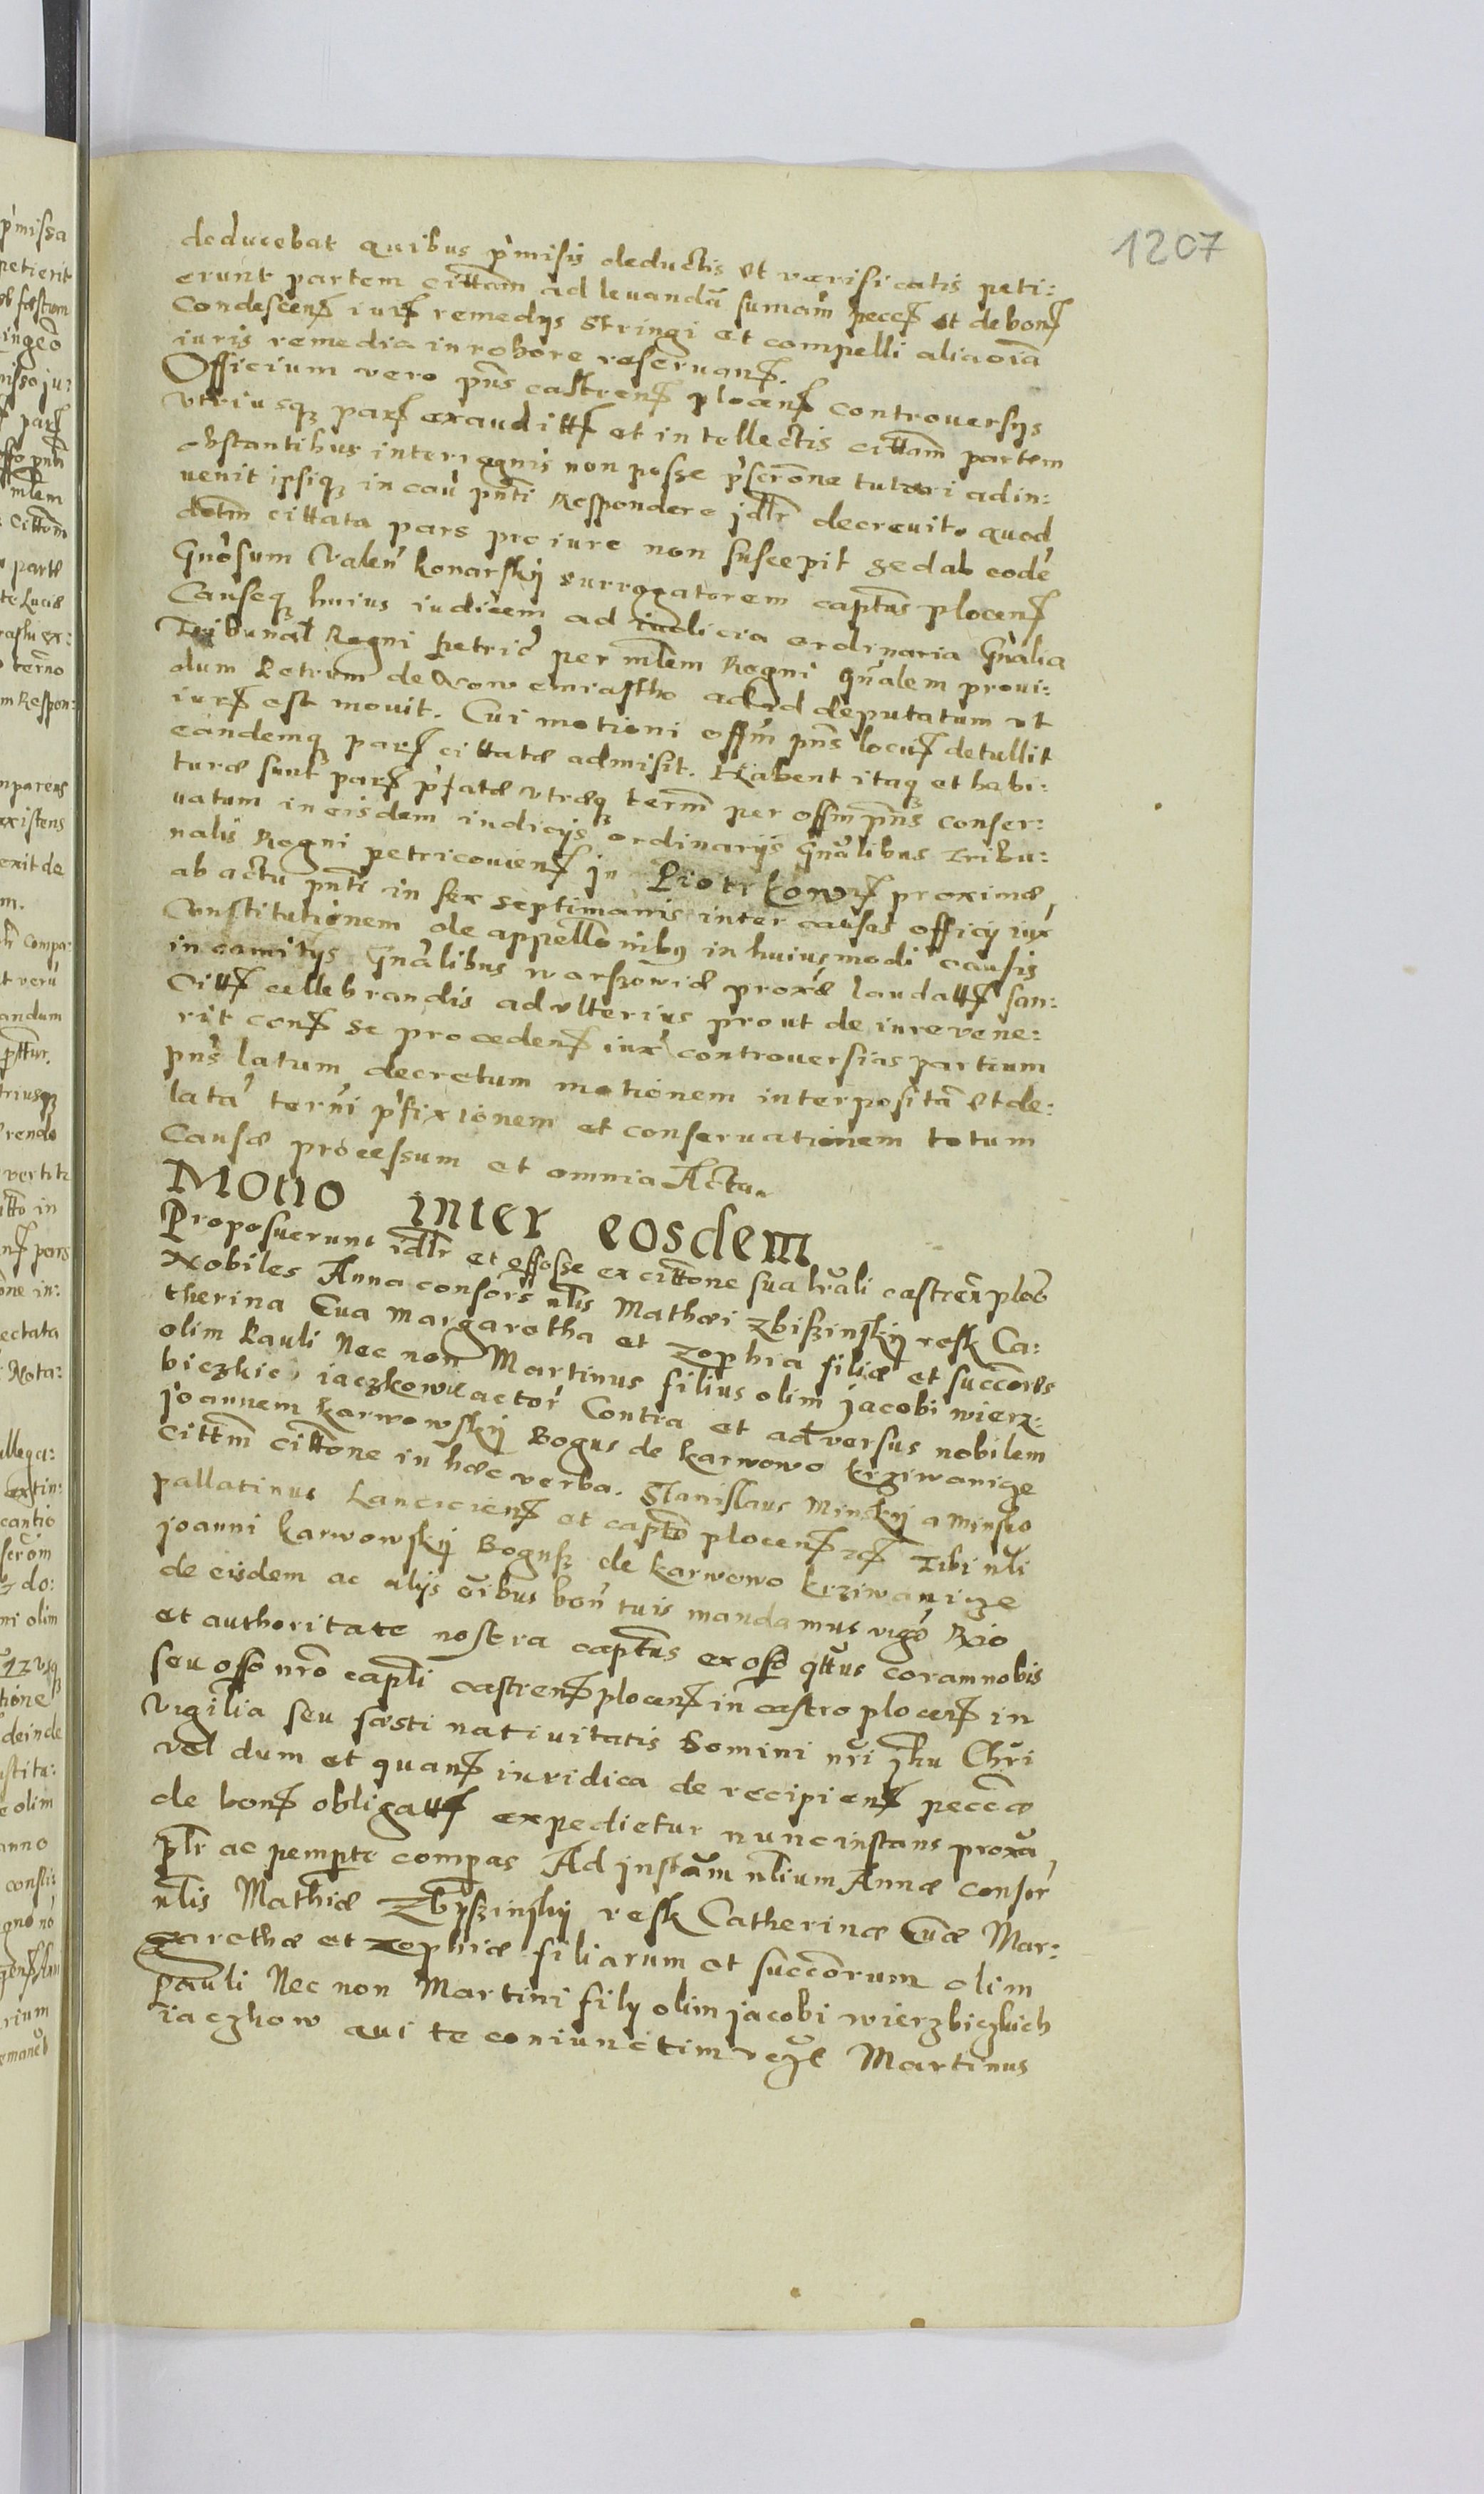 1207
deducebat quibus p'misis deductis et verificatis peti:
erunt partem cittam ad levandā sumam pecc et de bon
Condescen iur remedys stringi et compelli alia oīa
iuris remedia in robore reservan.
Officium vero pn̄s castren plocen controversys
utriusq par exauditt et intellectis cittam partem
obstantibus interregnis non posse p'scrone tutari adin:
venit ipsiq in cau pnti Respondere jdlr decrevit. quod
dctm cittata pars pro iure non suscepit sed ab eodē
Gn̄osum Valen Konarskij surrogatorem captus plocen
Causeq huius iudicem ad iudicia ordinaria Gn̄alia
Tribunal Regni Petric per mlem Regni Gn̄alem provi:
dum Petrum de Nowemiastho ad id deputatum ut
iur est movit. Cui motioni offm pn̄s locu detullit
eandemq par cittatæ admisit. Habent itaq et habi:
turæ sunt par p'fatæ utræq term per offm pn̄s conser:
vatum in eisdem iudicys ordinariis Gn̄alibus Tribu:
nalis Regni petricovien in Piotrkow proxime
ab actu pnti in sex septimanis inter causas officij iux
Constitutionem de appellonibus in huiusmodi causis
in comitys Gn̄alibus warszoviæ proxe laudatt san:
citt cellebrandis ad ulterius prout de iure vene:
rit cons se proceden iux controversias partium
pn̄s latum decretum motionem interpositā et de:
latā termi p'fixionem et conservationem totum
Causæ processum et omnia Acta.
Motio inter eosdem
Proposuerunt idlr et effosse ex cittone sua lrāli castren ploc
Nobiles Anna consors nlis Mathæi Zbiszinskij resk Ca:
therina Eva Margaretha et Zophia filiæ et succores
olim Pauli Nec non Martinus filius olim jacobi wierz:
biczkie iaczkowie actor Contra et adversus nobilem
joannem Karwowskij Bogus de Karwowo krziwanize
cittm cittone in hæc verba. Stanislaus Minskij a Minsko
pallatinus Lancicien et capto plocen Tibi nli
joanni karwowskij Bogusz de karwowo krziwanize
de eisdem ac alys oibus bon tuis mandamus vigō Rio
et authoritate nostra captus ex offo qttus coram nobis
seu offo nrō captli castren plocen in castro plocen in
vigilia seu festi nativitatis Domini nri jhu Chri
vel dum et quan iuridica de recipien peccæ
de bon obligatt expedietur nunc instans proxa
ptr ac pempte compas Ad instam nlium Annæ consor
nlis Mathiæ Zbyszinskij resk Catherinæ Evæ Mar:
garethæ et Zophiæ filiarum et succorum olim
Pauli Nec non Martini fily olim jacobi wierzbiczkich
iaczkow qui te coniunctim Martinus